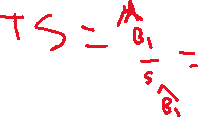 TS = B̂₁ / S B̂₁ =